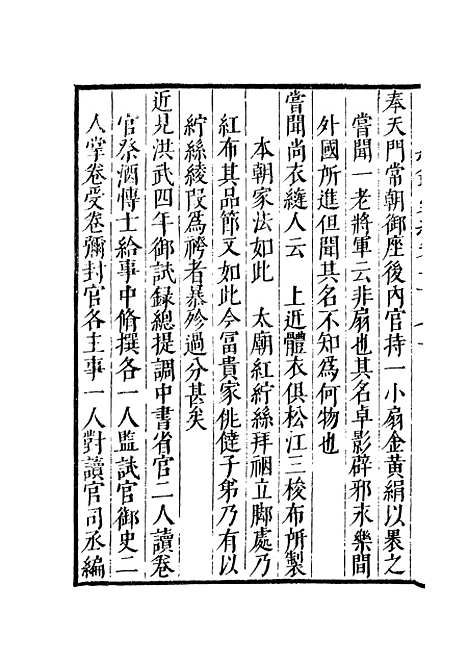 奉天門常朝御座後內官持一小扇金黃絹以裹之
嘗聞一老將軍云非扇也其名卓影辟邪永樂間
外國所進但聞其名不知爲何物也
嘗聞尚衣縫人云　上近體衣俱松江三梭布所製
本朝家法如此　太廟紅紵絲拜裀立脚處乃
紅布其品節又如此今富貴家佻㒓子弟乃有以
紵絲綾段爲袴者暴殄過分甚矣
近見洪武四年御試録總提調中書省官二人讀卷
官祭酒博士給事中脩撰各一人監試官御史二
人掌卷受卷彌封官各主事一人對讀官司丞編